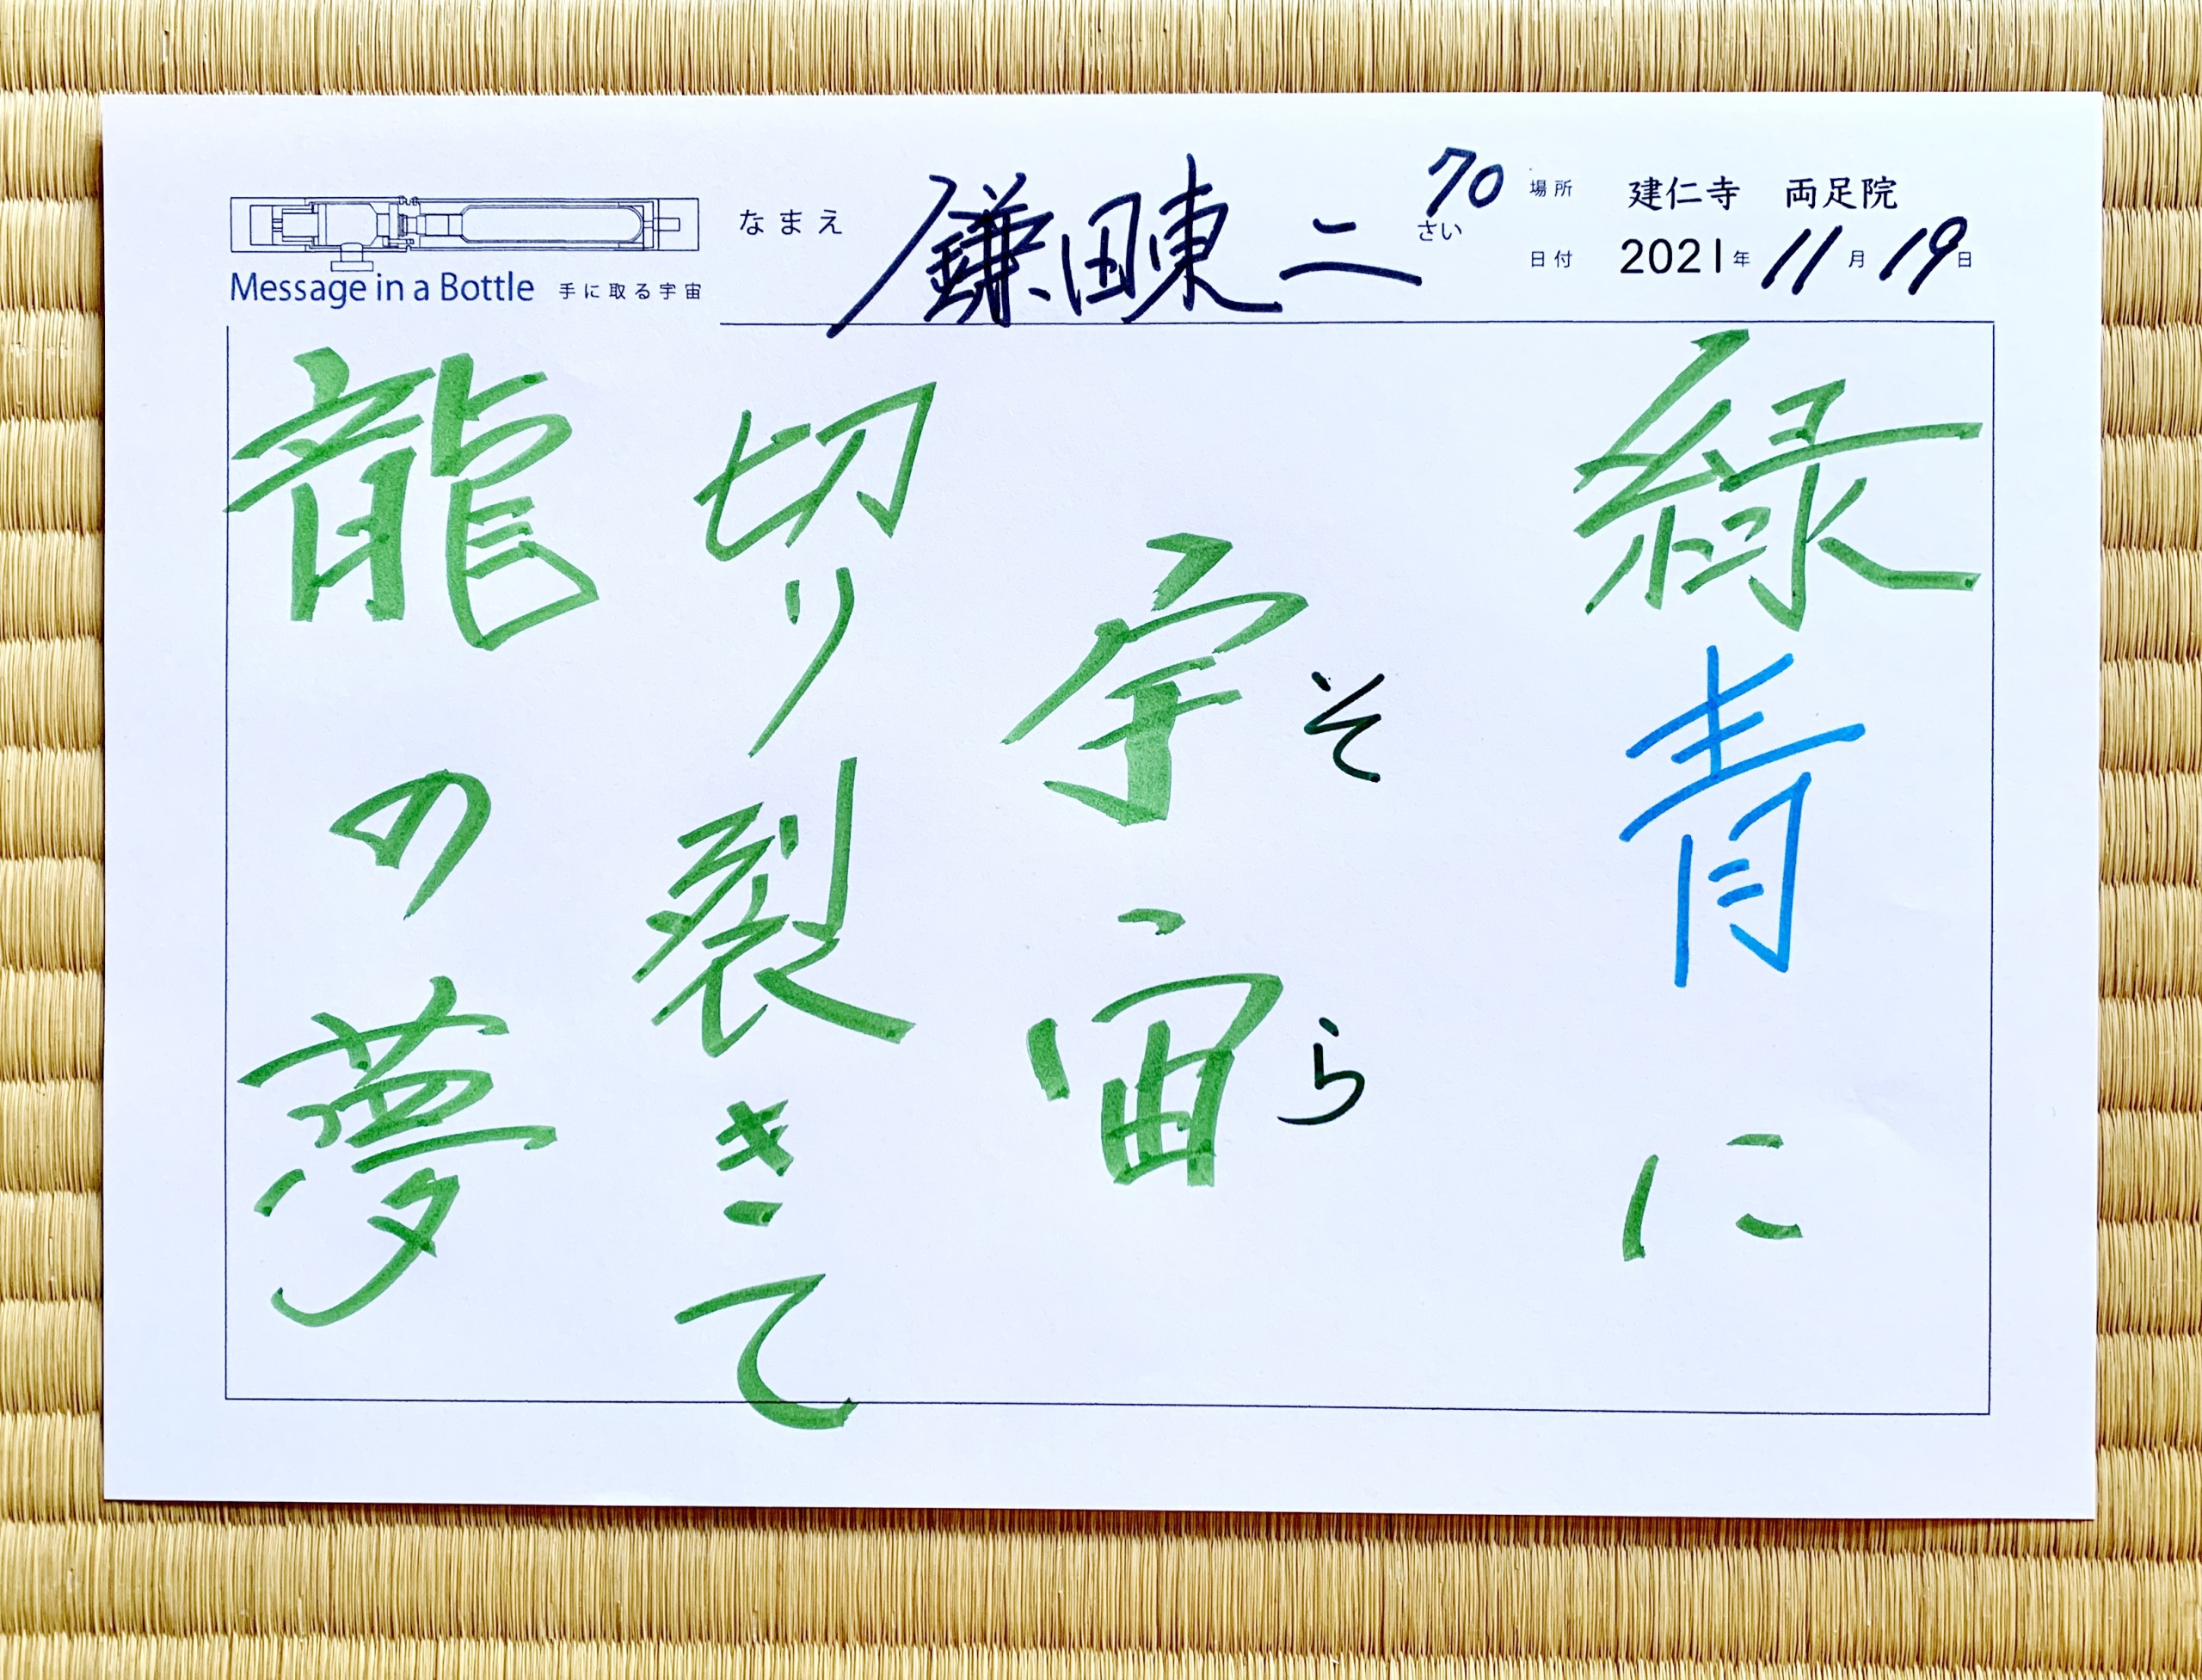 Message in a Bottle 手に取る宇宙
なまえ 鎌田東二 70さい
場所 建仁寺 両足院
日付 2021年11月19日
緑青に
宇宙
そら
切り裂きて
龍の夢